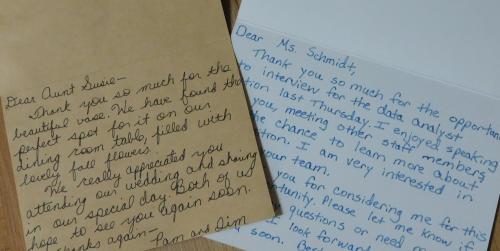 Dear Aunt Susie-
Thank you so much for the
beautiful vase. We have found the
perfect spot for it on our
dining room table, filled with
lovely fall flowers.
We really appreciated you
attending our wedding and sharing
in our special day. Both of us
hope to see you again soon.
Thanks again-
Pam and Jim
Dear Ms. Schmidt,
Thank you so much for the opportun
to interview for the data analyst
tion last Thursday. I enjoyed speaking
you, meeting other staff members
the chance to learn more about
ition. I am very interested in
your team.
you for considering me for this
ortunity. Please let me know if
questions or need
look forward
soon.